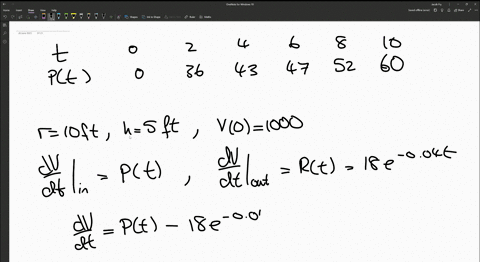 t 0 2 4 6 8 10
P(t) 0 36 43 47 52 60
r=10ft, h=5ft, V(0)=1000
dV/dt|in = P(t), dV/dt|out = R(t) = 18e^-0.04t
dV/dt = P(t) - 18e^-0.0